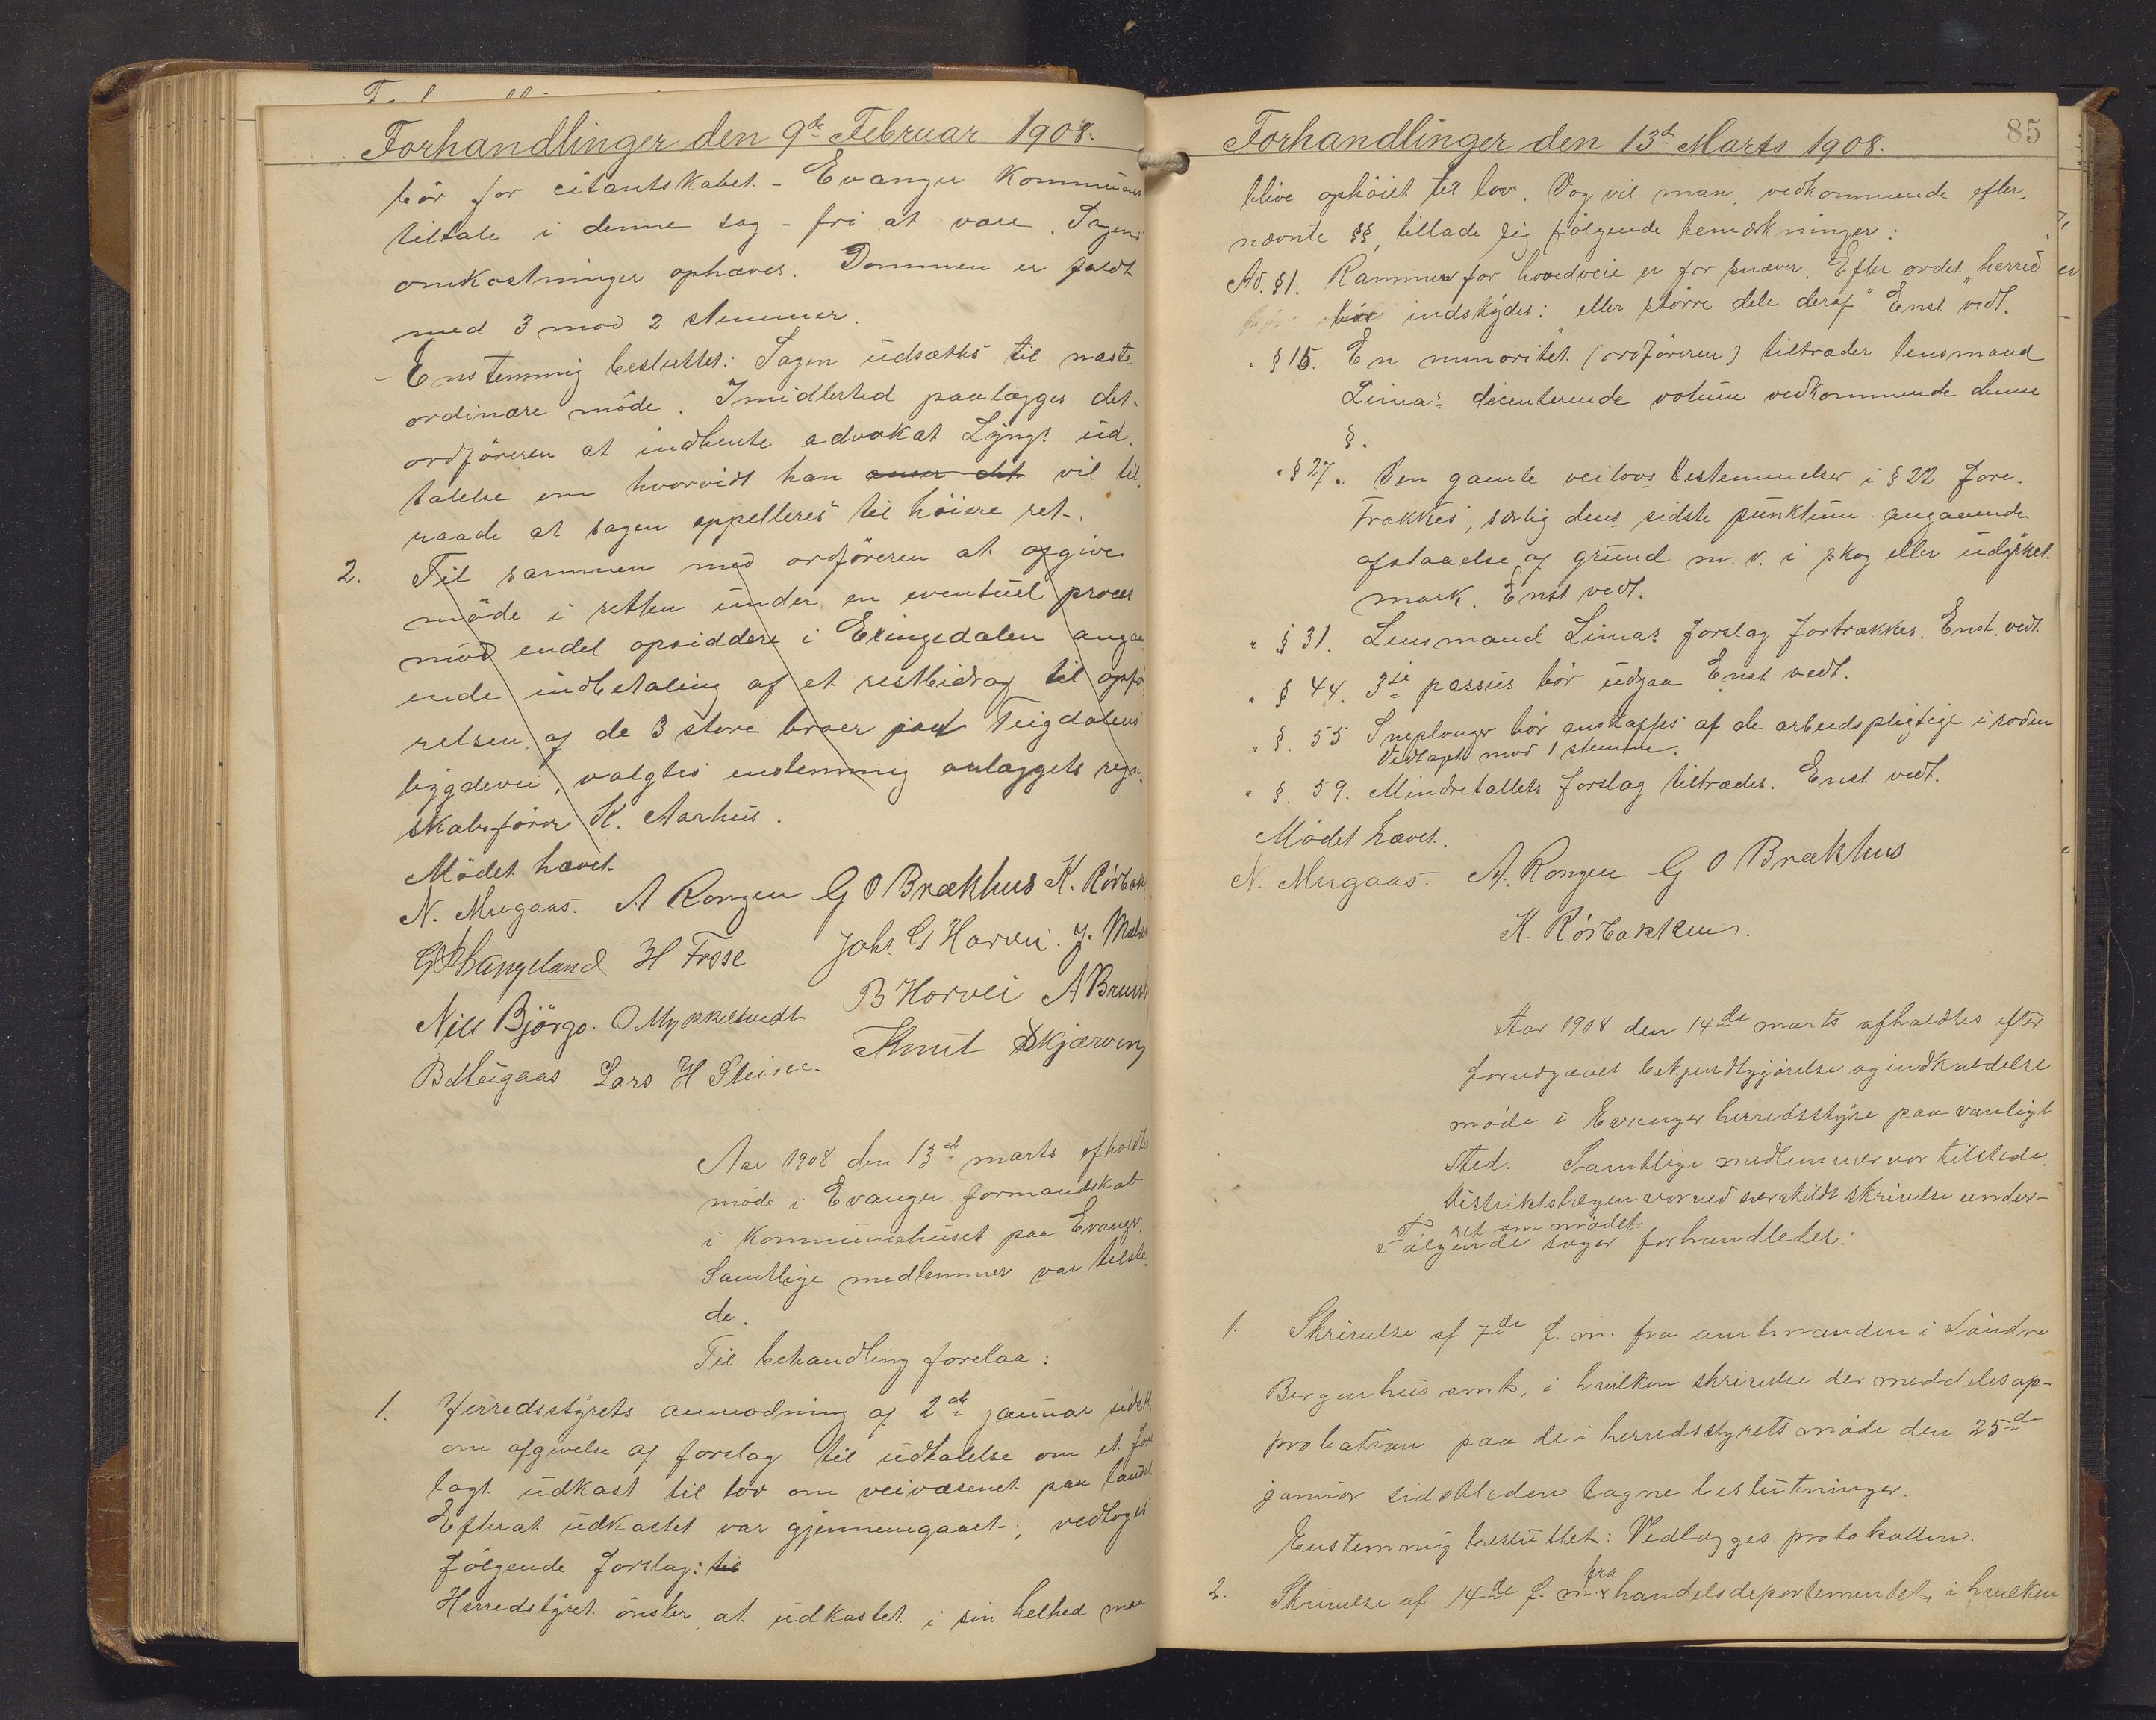 Forhandlinger den 9de Februar 1908.
bör for citantskabet - Evanger kommunes
tiltale i denne sag - fri at være. Sagens
omkostninger ophæves. Dommen er faldt
med 3 mod 2 stemmer.
Enstemmig besluttet: Sagen udsættes til næste
ordinære möde. Imidlertid paalægges det
ordföreren at indhente advokat Lyngs ud-
talelse om hvorvidt han anser det vil til-
raade at sagen appelleres til höiere ret.
2. Til sammen med ordföreren at afgive
möde i retten under en eventuel proces
mod endel opsiddere i Exingedalen angaa
ende indbetaling af et restbidrag til opfö
relsen af de 3 store broer paa Teigdalens
bygdevei, valgtes enstemmig anlæggets regn-
skabsförer K. Aarhus.
Mödet hævet.
N. Mugaas. A Rongen G O Brækhus K. Rörbak
Vangeland H Fosse Johs. G Horvei. J.
Nils Björgo. O Mykkeltvedt B Horvei A
B Mugaas Lars H Steine Knut Skjærven
Aar 1908 den 13de marts afholdtes
möde i Evanger formandskab
i kommunehuset paa Evanger.
Samtlige medlemmer var tilste
de.
Til behandling forelaa:
1. Herredsstyrets anmodning af 2de januar sidstl.
om afgivelse af forslag til udtalelse om et frem
lagt udkast til lov om veivæsenet paa landet.
Efterat udkastet var gjennemgaaet, vedtoges
fölgende forslag: til
Herredstyret önsker at udkastet i sin helhed maa
Forhandlinger den 13de Marts 1908.
85
blive ophöiet til lov. Dog vil man, vedkommende efter-
nævnte §§, tillade sig fölgende bemærkninger:
Ad. §1. Rammen for hovedveie er for snæver. Efter ordet "herred"
bör indskydes: "eller större dele deraf". Enst. vedt.
" §15. En minoritet (ordföreren) tiltræder lensmand
Limas dicenterende votum vedkommende denne
§.
" §27. Den gamle veilovs bestemmelser i §22 fore-
trækkes, særlig dens sidste punktum angaaende
afstaaelse af grund m. v. i skog eller udyrket
mark. Enst vedt.
" §31. Lensmand Limas forslag fortrækkes. Enst. vedt.
" §44. 3die passus bör udgaa Enst vedt.
" §. 55 Sneplouger bör anskaffes af de arbeidspligtige i roden
Vedtaget mod 1 stemme.
" §. 59. Mindretallets forslag tiltrædes. Enst vedt.
Mödet hævet.
N. Mugaas. A. Rongen G O Brækhus
K. Rörbakken.
Aar 1908 den 14de marts afholdtes efter
forudgaaet bekjendtgjörelse og indkaldelse
möde i Evanger herredsstyre paa vanligt
sted. Samtlige medlemmer var tilstede.
Distriktslægen var ved særskildt skrivelse under-
ret om mödet.
Fölgende sager forhandledes:
1. Skrivelse af 7de f. m. fra amtmanden i Söndre
Bergenhus amt, i hvilken skrivelse der meddeles ap-
probation paa de i herredsstyrets möde den 25de
januar sidstleden tagne beslutninger.
Enstemmig besluttet: Vedlægges protokollen.
2. Skrivelse af 14de f. m. fra handelsdepartementet, i hvilken